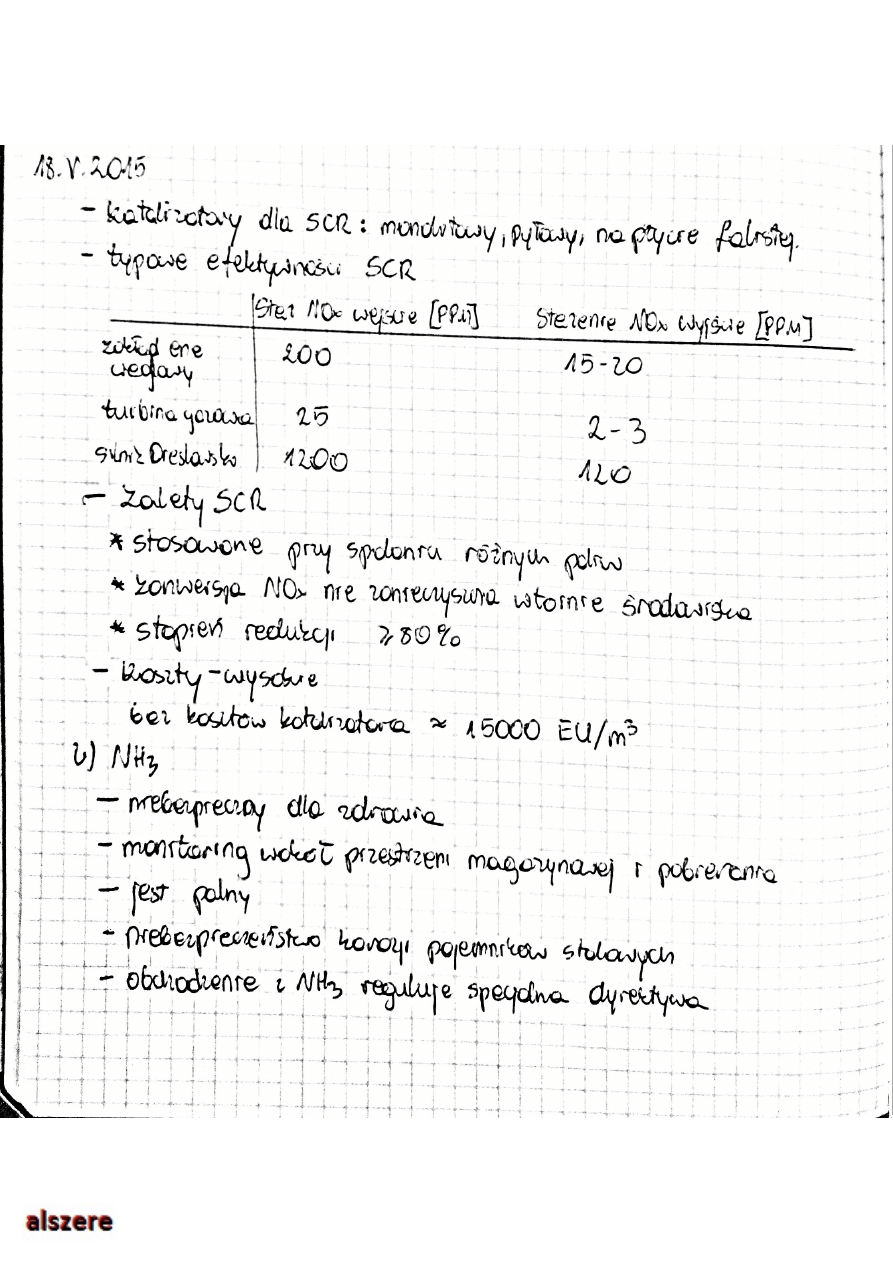 18.V.2015
- katalizatory dla SCR: monolitowy, pyłowy, na płycie falistej.
- typowe efektywności SCR
Stęż NOx wejście [PPM] Stężenie NOx wyjście [PPM]
zakład ene
węglowy 200 15-20
turbina gazowa 25 2-3
silnik Dieslawsko 1200 120
- Zalety SCR
* stosowane przy spalaniu różnych paliw
* konwersja NOx nie zanieczyszcza wtórnie środowiska
* stopień redukcji ≥80%
- koszty - wysokie
bez kosztów katalizatora ≈ 15000 EU/m³
NH3
- niebezpieczny dla zdrowia
- monitoring wokół przestrzeni magazynowej i pobierania
- jest palny
- niebezpieczeństwo korozji pojemników stalowych
- obchodzenie z NH3 reguluje specjalna dyrektywa
alszere